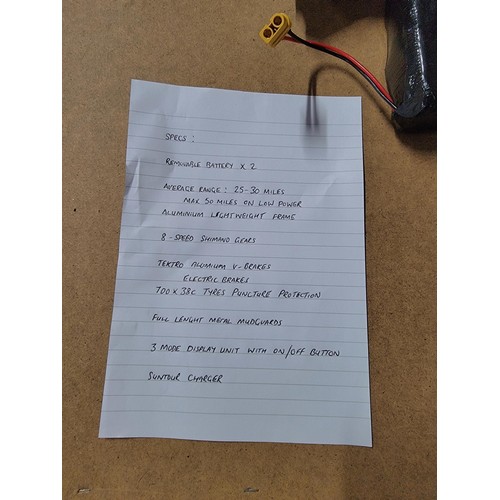 SPECS :
REMOVABLE BATTERY X 2
AVERAGE RANGE : 25-30 MILES
MAX 50 MILES ON LOW POWER
ALUMINIUM LIGHTWEIGHT FRAME
8-SPEED SHIMANO GEARS
TEKTRO ALUMIUM V-BRAKES
ELECTRIC BRAKES
700 X 38C TYRES PUNCTURE PROTECTION
FULL LENGHT METAL MUDGUARDS
3 MODE DISPLAY UNIT WITH ON/OFF BUTTON
SUNTOUR CHARGER